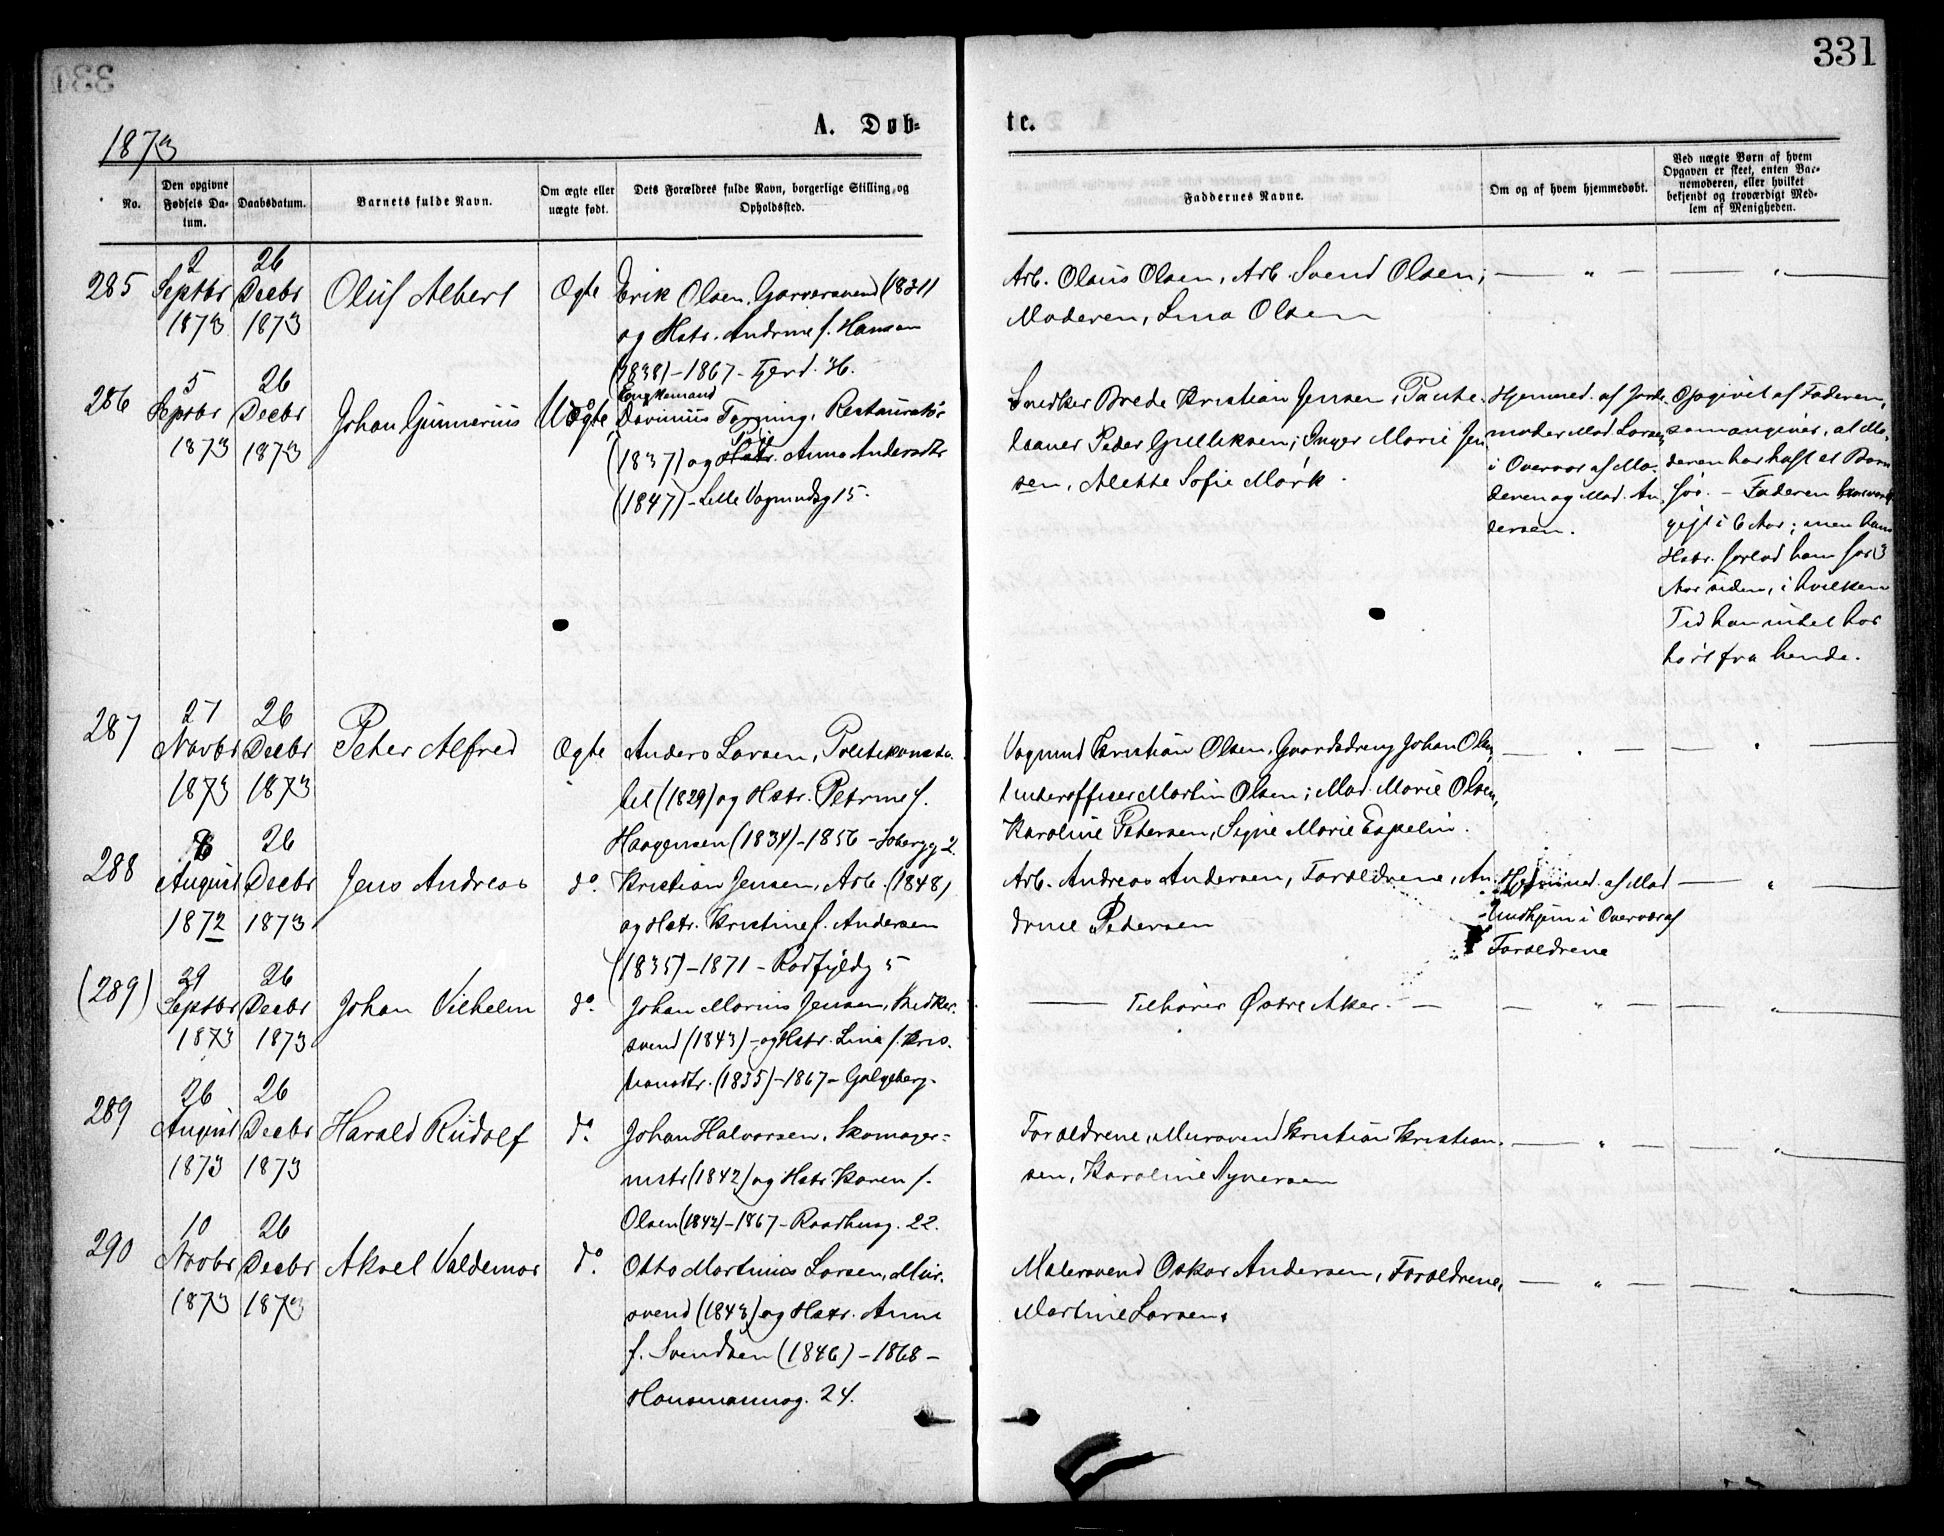 331
1873
A. Døb-
te.
No.
Den opgivne Fødsels Datum.
Daabsdatum.
Barnets fulde Navn.
Om ægte eller uægte født.
Dets Forældres fulde Navn, borgerlige Stilling, og Opholdssted.
Faddernes Navne.
Om og af hvem hjemmedøbt.
Ved uægte Børn af hvem Opgaven er skeet, enten Barnemoderen, eller hvilket bekjendt og troværdigt Medlem af Menigheden.
285
2 Septbr 1873
26 Decbr 1873
Oluf Albert
Ægte
Erik Olsen, Garversvend (1831)
og Hstr. Andrine f. Hansen
(1838) - 1867 - Fjerd. 36.
Arb. Olaus Olsen, Arb. Svend Olsen;
Moderen, Lina Olsen
286
5 Septbr 1873
26 Decbr 1873
Johan Gunnerius
Uægte
Enkemand
Torgning, Restauratør
(1837) og Hstr. Anna Andersdtr
(1847) - Lille Vognmdsg 15.
Snedker Brede Kristian Jensen,
Peder Gulliksen; Inger Marie Jen
sen, Alette Sofie Mørk.
Hjemmed. af Jorde-
moder Mad Larsen
i Overvær af Mo-
deren og Mad. An
dersen.
Opgivet af Faderen,
som angiver, at Mo-
deren har havt et Barn
før. - Faderen har været
gift i 6 Aar; men hans
Hstr. forlod ham for 3
Aar siden, i hvilken
Tid han intet har
hørt fra hende.
287
27 Novbr 1873
26 Decbr 1873
Peter Alfred
Ægte
Anders Larsen, Politikonsta-
bel (1829) og Hstr. Petrine f.
Haagensen (1834) - 1856 - 2.
Vognmd Kristian Olsen, Gaardsdreng Johan Olsen,
Underofficer Martin Olsen; Mad. Marie Olsen,
Karoline Pedersen, Signe Marie Espelin.
288
August 1872
26 Decbr 1873
Jens Andreas
do.
Kristian Jensen, Arb. (1848)
og Hstr. Kristine f. Andersen
(1835) - 1871 - Rødfyldg 5
Arb. Andreas Andersen, Forældrene, An
drine Pedersen
Hjemmed. af Mad
Lindhjem i Overvær af
Forældrene
(289)
29 Septbr 1873
26 Decbr 1873
Johan Vilhelm
do.
Johan Marius Jensen, Snedker-
svend (1843) - og Hstr. Lina f. Kris-
tiansdtr. (1835) - 1867 - Galgeberg.
Tilhører Østre Aker.
289
26 August 1873
26 Decbr 1873
Harald Rudolf
do.
Johan Halvorsen, Skomager-
mstr (1842) og Hstr Karen f.
Olsen (1842) - 1867 - Raadhusg. 22.
Forældrene, Mursvend Kristian Kristian-
sen, Karoline Syversen
290
10 Novbr 1873
26 Decbr 1873
Aksel Valdemar
do.
Otto Martinius Larsen, Mur-
svend (1843) og Hstr. Anne
f. Svendsen (1846) - 1868 -
Hausmannsg. 24.
Malersvend Oskar Andersen, Forældrene,
Martine Larsen.